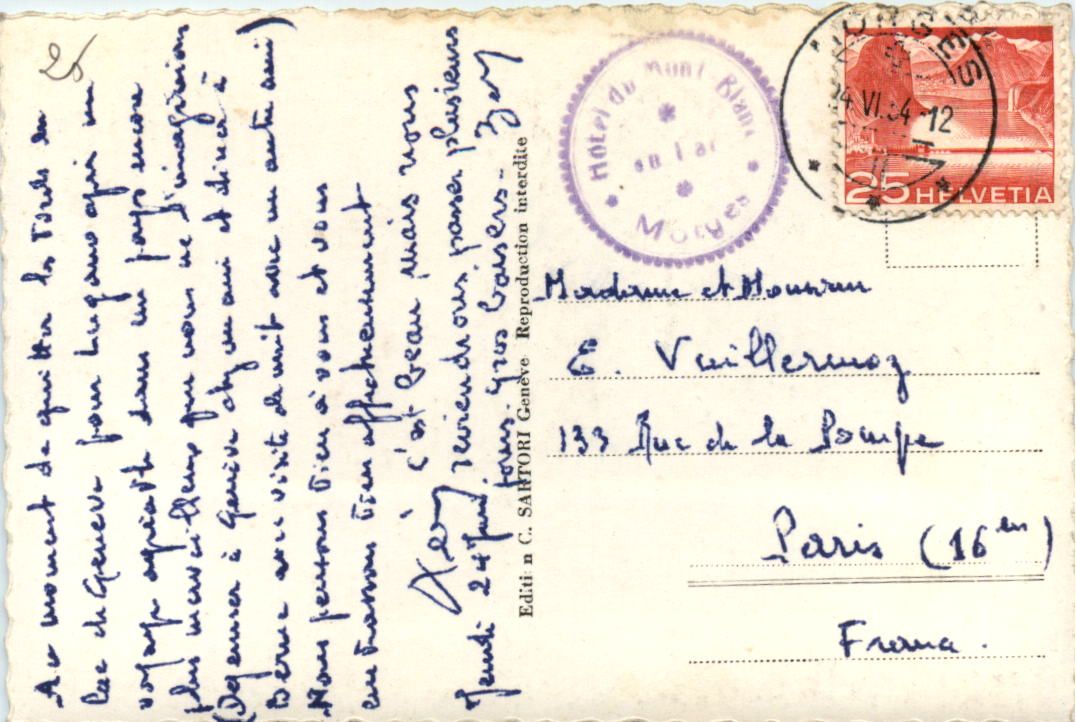 26
Au moment de quitter les bords du
lac de Genève pour Lugano après un
voyage agréable dans un pays encore
plus merveilleux que nous ne l'imaginions
(Déjeuner à Genève chez un ami et dîner à
Berne avec visite de nuit avec un autre ami)
Nous pensons bien à vous et vous
embrassons bien affectueusement
c'est beau mais nous
reviendrons passer plusieurs
jours. Gros baisers.
Jeudi 24 Juin.
Editi n C. SARTORI Genève Reproduction interdite
Hôtel du Mont-Blanc
au Lac
Morges
MORGES
24 VI 54-12
25 HELVETIA
Madame et Monsieur
E. Vuillermoz
133 Rue de la Pompe
Paris (16em)
France.